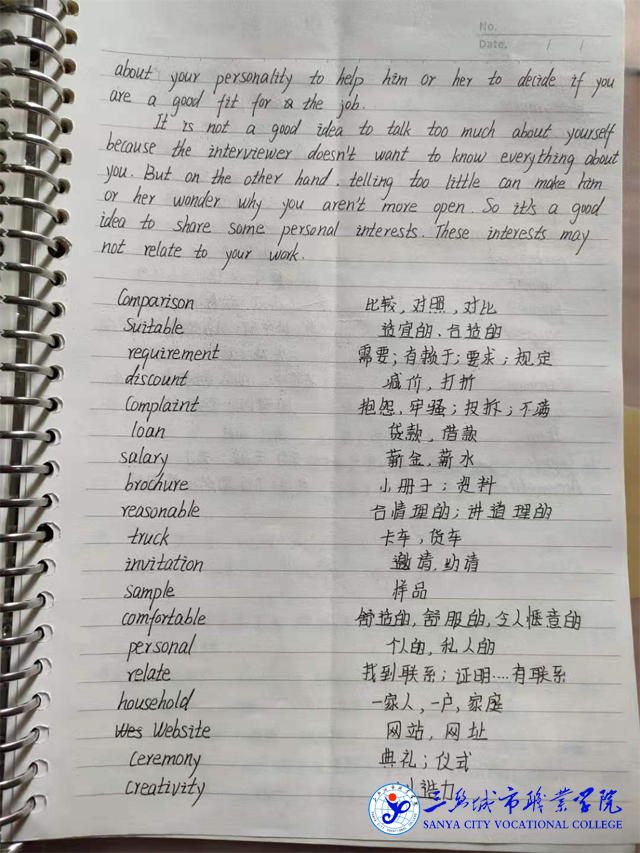 No.
Date. / /
about your personality to help him or her to decide if you
are a good fit for the job.
It is not a good idea to talk too much about yourself
because the interviewer doesn't want to know everything about
you. But on the other hand, telling too little can make him
or her wonder why you aren't more open. So it's a good
idea to share some personal interests. These interests may
not relate to your work.
Comparison 比较,对照,对比
Suitable 适宜的、合适的
requirement 需要;有赖于;要求;规定
discount 减价,打折
Complaint 抱怨,牢骚;投拆;不满
loan 贷款,借款
salary 薪金,薪水
brochure 小册子;资料
reasonable 合情理的;讲道理的
truck 卡车,货车
invitation 邀请,
sample 样品
comfortable 舒适的,舒服的,令人惬意的
personal 个人的,私人的
relate 找到联系;证明....有联系
household 一家人,一户,家庭
Website 网站,网址
Ceremony 典礼;仪式
Creativity 造力
三亚城市职业学院
SANYA CITY VOCATIONAL COLLEGE